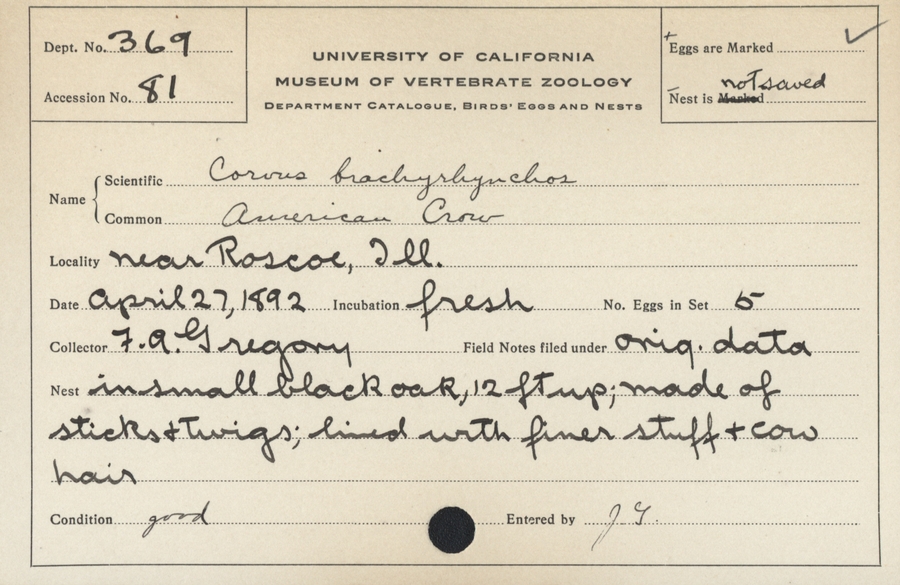 Dept. No. 369
Accession No. 81
UNIVERSITY OF CALIFORNIA
MUSEUM OF VERTEBRATE ZOOLOGY
DEPARTMENT CATALOGUE, BIRDS' EGGS AND NESTS
+ Eggs are Marked ✓
not saved
– Nest is Marked
Name { Scientific Corvus brachyrhynchos
Common American Crow
Locality near Roscoe, Ill.
Date April 27, 1892 Incubation fresh No. Eggs in Set 5
Collector F. A. Gregory Field Notes filed under orig. data
Nest in small black oak, 12 ft up; made of
sticks + twigs; lined with finer stuff + cow
hair
Condition good Entered by J G.